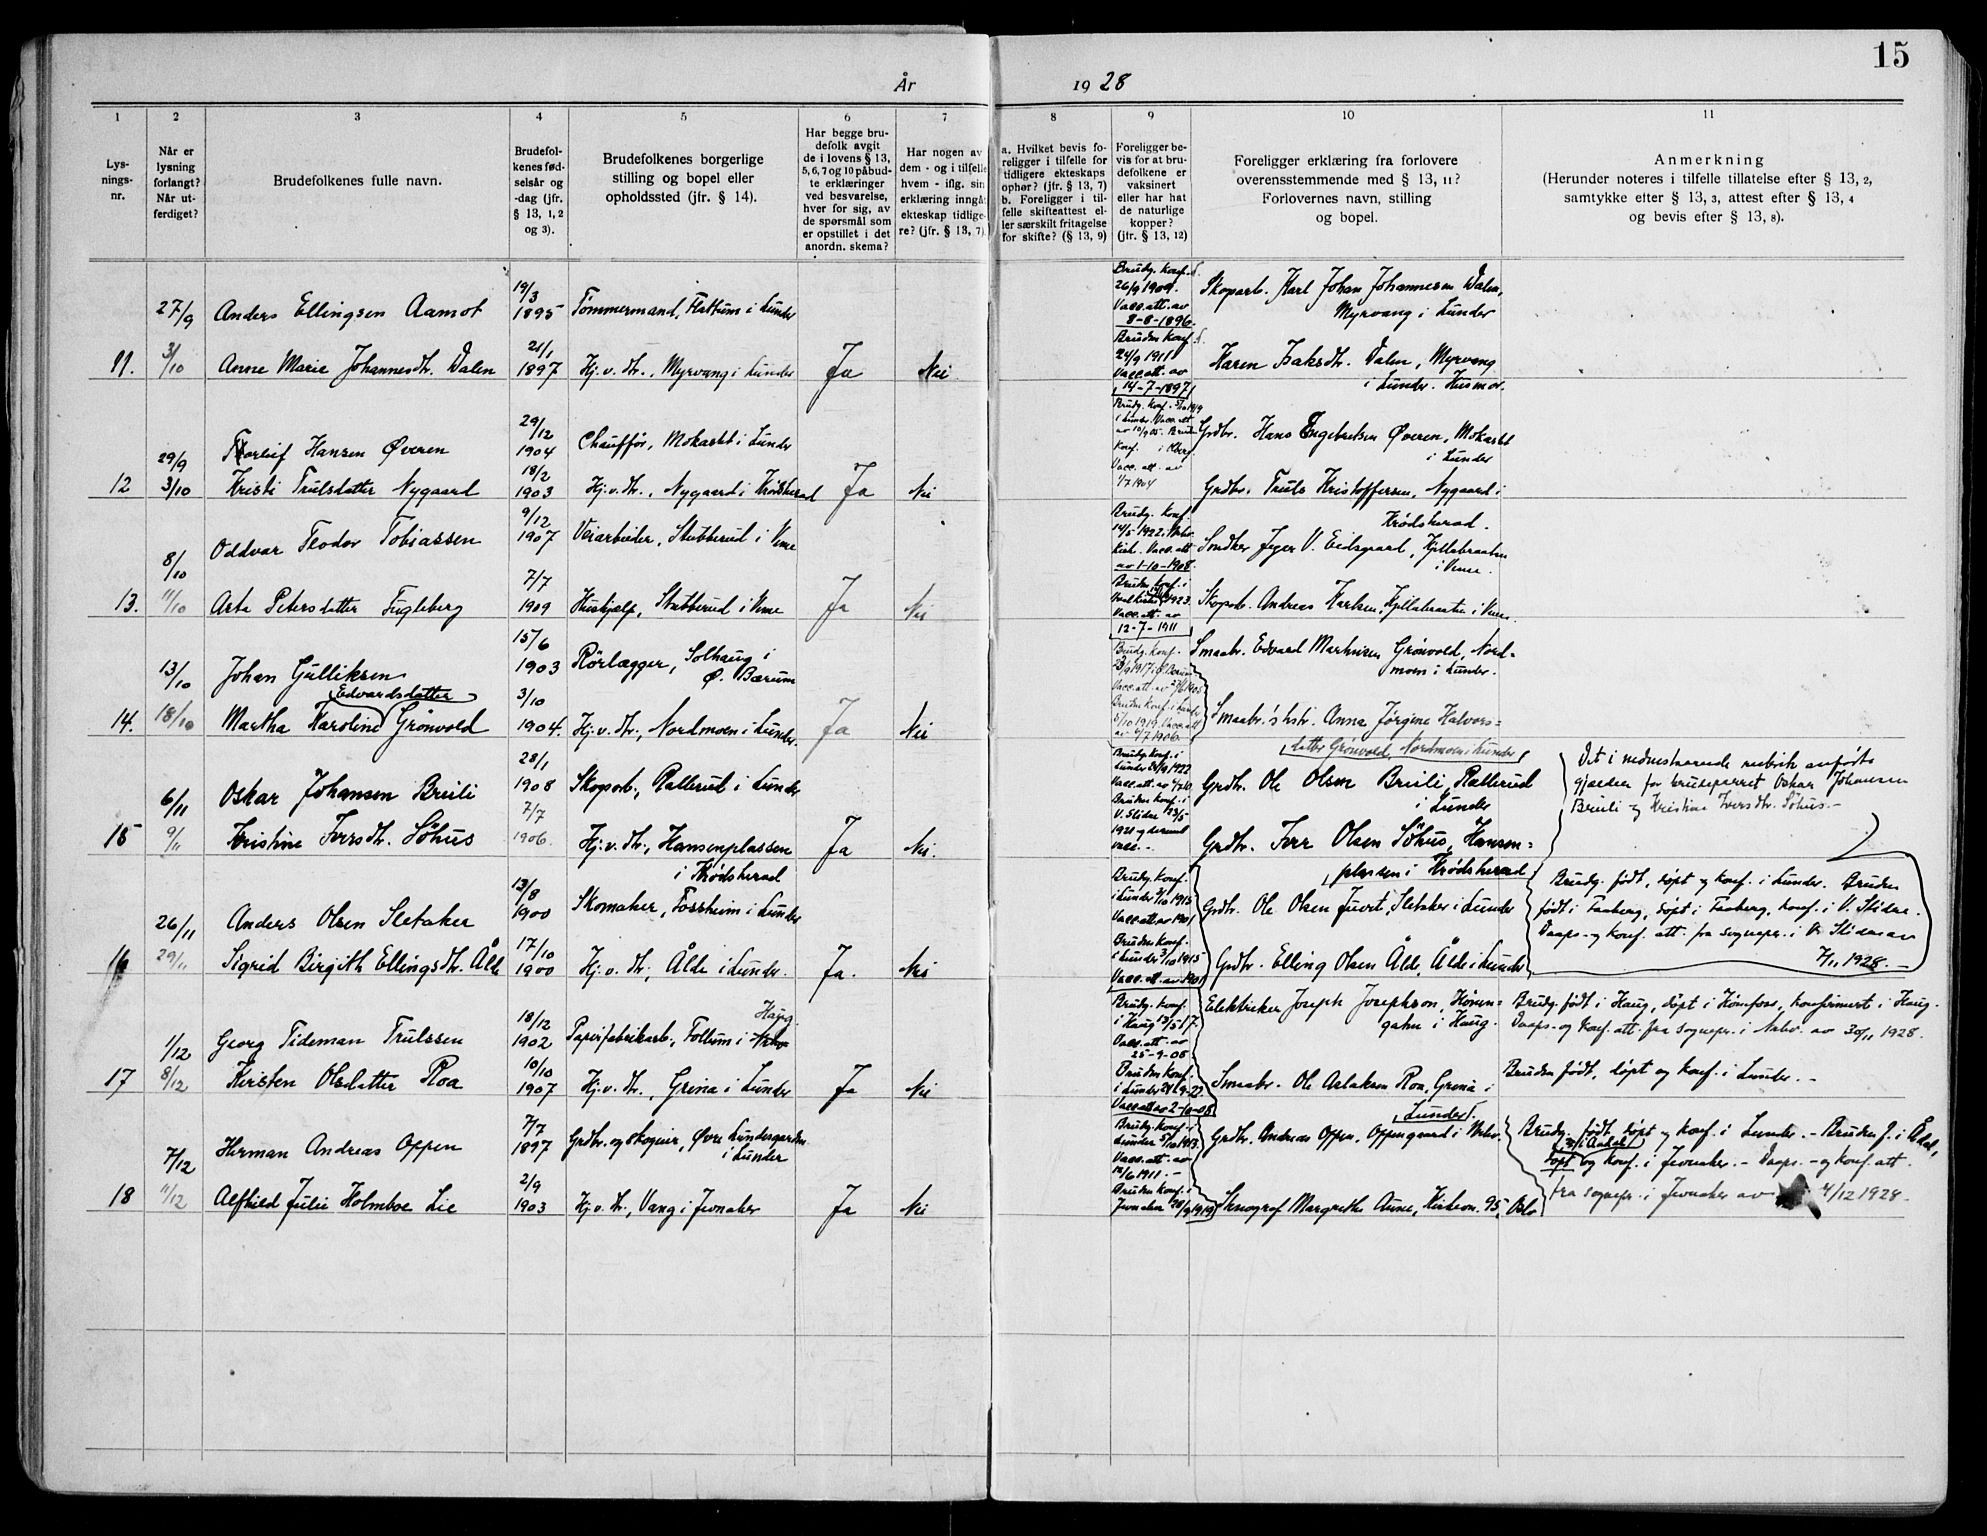 15
År 1928
1 2 3 4 5 6 7 8 9 10 11
Lys-
nings-
nr.
Når er
lysning
forlangt?
Når ut-
ferdiget?
Brudefolkenes fulle navn.
Brudefol-
kenes fød-
selsår og
-dag (jfr.
§ 13, 1, 2
og 3).
Brudefolkenes borgerlige
stilling og bopel eller
opholdssted (jfr. § 14).
Har begge bru-
defolk avgit
de i lovens § 13,
5, 6, 7 og 10 påbud-
te erklæringer
ved besvarelse,
hver for sig, av
de spørsmål som
er opstillet i det
anordn. skema?
Har nogen av
dem - og i tilfelle
hvem - iflg. sin
erklæring inngåt
ekteskap tidlige-
re? (jfr. § 13, 7).
a. Hvilket bevis fo-
religger i tilfelle for
tidligere ekteskaps
ophør? (jfr. § 13, 7)
b. Foreligger i til-
felle skifteattest el-
ler særskilt fritagelse
for skifte? (§ 13, 9)
Foreligger be-
vis for at bru-
defolkene er
vaksinert
eller har hat
de naturlige
kopper?
(jfr. § 13, 12)
Foreligger erklæring fra forlovere
overensstemmende med § 13, 11?
Forlovernes navn, stilling
og bopel.
Anmerkning
(Herunder noteres i tilfelle tillatelse efter § 13, 2,
samtykke efter § 13, 3, attest efter § 13, 4
og bevis efter § 13, 8).
27/9 Anders Ellingsen Aamot 19/3 1895 Tømmermand, Flattum i Lunder
Brudg. konf.
26/9 1909.
Vacc. att. av
8-8-1896.
Skoparb. Karl Johan Johannesen Dalen,
Myrvang i Lunder
11. 3/10 Anne Marie Johannesdtr. Dalen 21/1 1897 Hj. v. dtr., Myrvang i Lunder Ja Nei
Bruden konf.
24/9 1911
Vacc. att. av
14-7-1897
Karen Isaksdtr. Dalen, Myrvang
i Lunder. Husmor.
29/9 Torleif Hansen Øveren 29/12 1904 Chauffør, Mokastet i Lunder
Brudg. konf. 5/10 1919
i Lunder. Vacc. att.
av 10/9 05. Bruden
konf.
Vacc. att. av
1/7 1904
Grdbr. Hans Engebretsen Øveren, Mokastet
i Lunder
12 3/10 Kristi Trulsdatter Nygaard 18/2 1903 Hj. v. dtr., Nygaard i Krødsherad Ja Nei
Grdbr. Truls Kristoffersen, Nygaard i
Krødsherad.
8/10 Oddvar Teodor Tobiassen 9/12 1907 Veiarbeider, Stubberud i Veme
Brudg. konf.
14/5 1922. Norder.
kirk. Vacc. att
av 1-10-1908.
V. Eidsgaard,
i Veme.
13. 11/10 Asta Petersdatter Fugleberg 7/7 1909 Hushjelp, Stubberud i Veme Ja Nei
Bruden konf. i
1923.
Vacc. att. av
12-7-1911
Skoparb. Andreas Karlsen, i Veme
13/10 Johan Gulliksen 15/6 1903 Rørlægger, Solhaug i
Ø. Bærum
Brudg. konf.
23/9 1917 i Ø. Bærum
Vacc. att. av 27/6 1905
Smaabr. Edvard Martinsen Grønvold, Nord=
moen i Lunder.
Edvardsdatter
14. 18/10 Martha Karoline Grønvold 3/10 1904. Hj. v. dtr., Nordmoen i Lunder. Ja Nei
Bruden konf. i Lunder
5/10 1919. Vacc. att
av 4/7 1906.
Smaabr.'s hstr. Anna Jørgine Halvors-
datter Grønvold, Nordmoen i Lunder
6/11 Oskar Johansen Bruli 28/1 1908 Skoparb., Rallerud i Lunder
Brudg. konf. i
Lunder 24/9 1922
Grdbr. Ole Olsen Bruli, Rallerud
i Lunder
Det i nedenstaaende rubrik anførte
gjælder for brudeparret Oskar Johansen
Bruli og Kristine Iversdtr. Søhus.-
15 9/11 Kristine Iversdtr. Søhus 7/7 1906. Hj. v. dtr., Hansenplassen
i Krødsherad Ja Nei.
Bruden konf. i
V. Slidre 23/5
1921 og derunder
vacc.-
Grdbr. Iver Olsen Søhus, Hansen=
plassen i Krødsherad
Brudg. født, døpt og konf. i Lunder. Bruden
født i Faaberg, døpt i Faaberg, konf. i V. Slidre.
Daaps- og konf. att. fra sognepr. i V. Slidre av
7/11 1928.-
26/11 Anders Olsen Sletaker 13/8 1900 Skomaker, Fossheim i Lunder
Brudg. konf.
i Lunder 3/10 1915
Vacc. att. av 1901
Grdbr. Ole Olsen Juvet, Sletaker i Lunder
16 29/11 Sigrid Birgith Ellingsdtr. Ålde 17/10 1900 Hj. v. dtr., Ålde i Lunder. Ja. Nei
Bruden konf.
i Lunder 3/10 1915
Vacc. att. av 1901
Grdbr. Elling Olsen Ålde, Ålde i Lunder
1/12 Georg Tideman Trulssen 18/12 1902 Papirfabrikarb., Follum i Haug
Brudg. konf.
i Haug 13/5 17.
Vacc. att. av
25-9-08.
Elektriker Joseph Josephson, Hønen-
gahn i Haug.
Brudg. født i Haug, døpt i Hønefoss, konfirmert i Haug.
Daaps- og konf. att. fra sognepr. i Norder. av 30/11 1928.
17 8/12 Kirsten Olsdatter Roa 10/10 1907 Hj. v. dtr., Grina i Lunder Ja Nei
Bruden konf.
i Lunder 24-9-22.
Vacc. att. av 2-10-08
Smaabr. Ole Aslaksen Roa, Grina i
Lunder.
Bruden født, døpt og konf. i Lunder.-
7/12 Herman Andreas Oppen 7/7 1897 Grdbr. og skogeier, Øvre Lundesgaarden
i Lunder
Brudg. konf. i
Lunder 5/10 1913.
Vacc. att. av
14/6 1911.-
Grdbr. Andreas Oppen. Oppengaard i Norder.
Brudg. født, døpt og konf. i Lunder.- Bruden f. i Ådal,
døpt og konf. i Jevnaker.- Daaps.- og konf. att.
fra sognepr. i Jevnaker av 4/12 1928.
18 11/12 Alfhild Julie Holmboe Lie 2/9 1903 Hj. v. dtr., Vang i Jevnaker Ja Nei
Bruden konf. i
Jevnaker 28/9 1919
Stenograf Margrethe Aune, Kirkevn. 95, Oslo